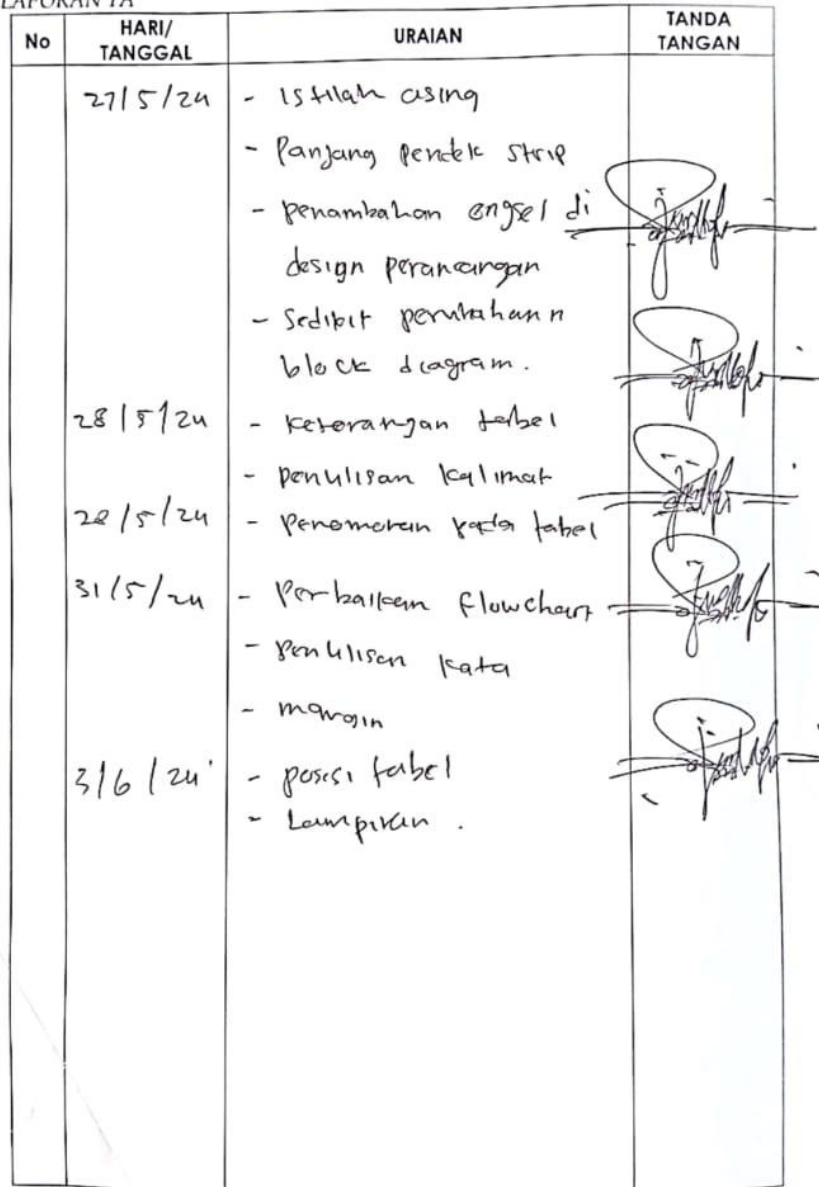 LAPORAN TA
No HARI/ TANGGAL URAIAN TANDA TANGAN
27/5/24 - Istilah asing
- Panjang pendek strip
- penambahan engsel di
design perancangan
- Sedikit perubahan n
block diagram.
28/5/24 - keterangan tabel
- penulisan kalimat
28/5/24 - Penomoran pada tabel
31/5/24 - Perbaikan flowchart
- penulisan kata
- margin
3/6/24 - posisi tabel
- Lampiran .